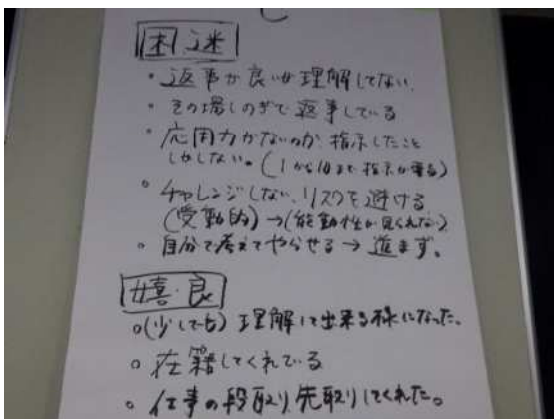 困・迷
・返事が良いが理解してない
・その場しのぎで返事している
・応用力がないのか 指示したこと
しかしない。(1から10まで指示が要る)
・チャレンジしない、リスクを避ける
(受動的)→(能動性が見られない)
・自分で考えてやらせる→進まず。
嬉・良
○(少しでも)理解して出来る様になった。
○在籍してくれている
・仕事の段取り先取りしてくれた。